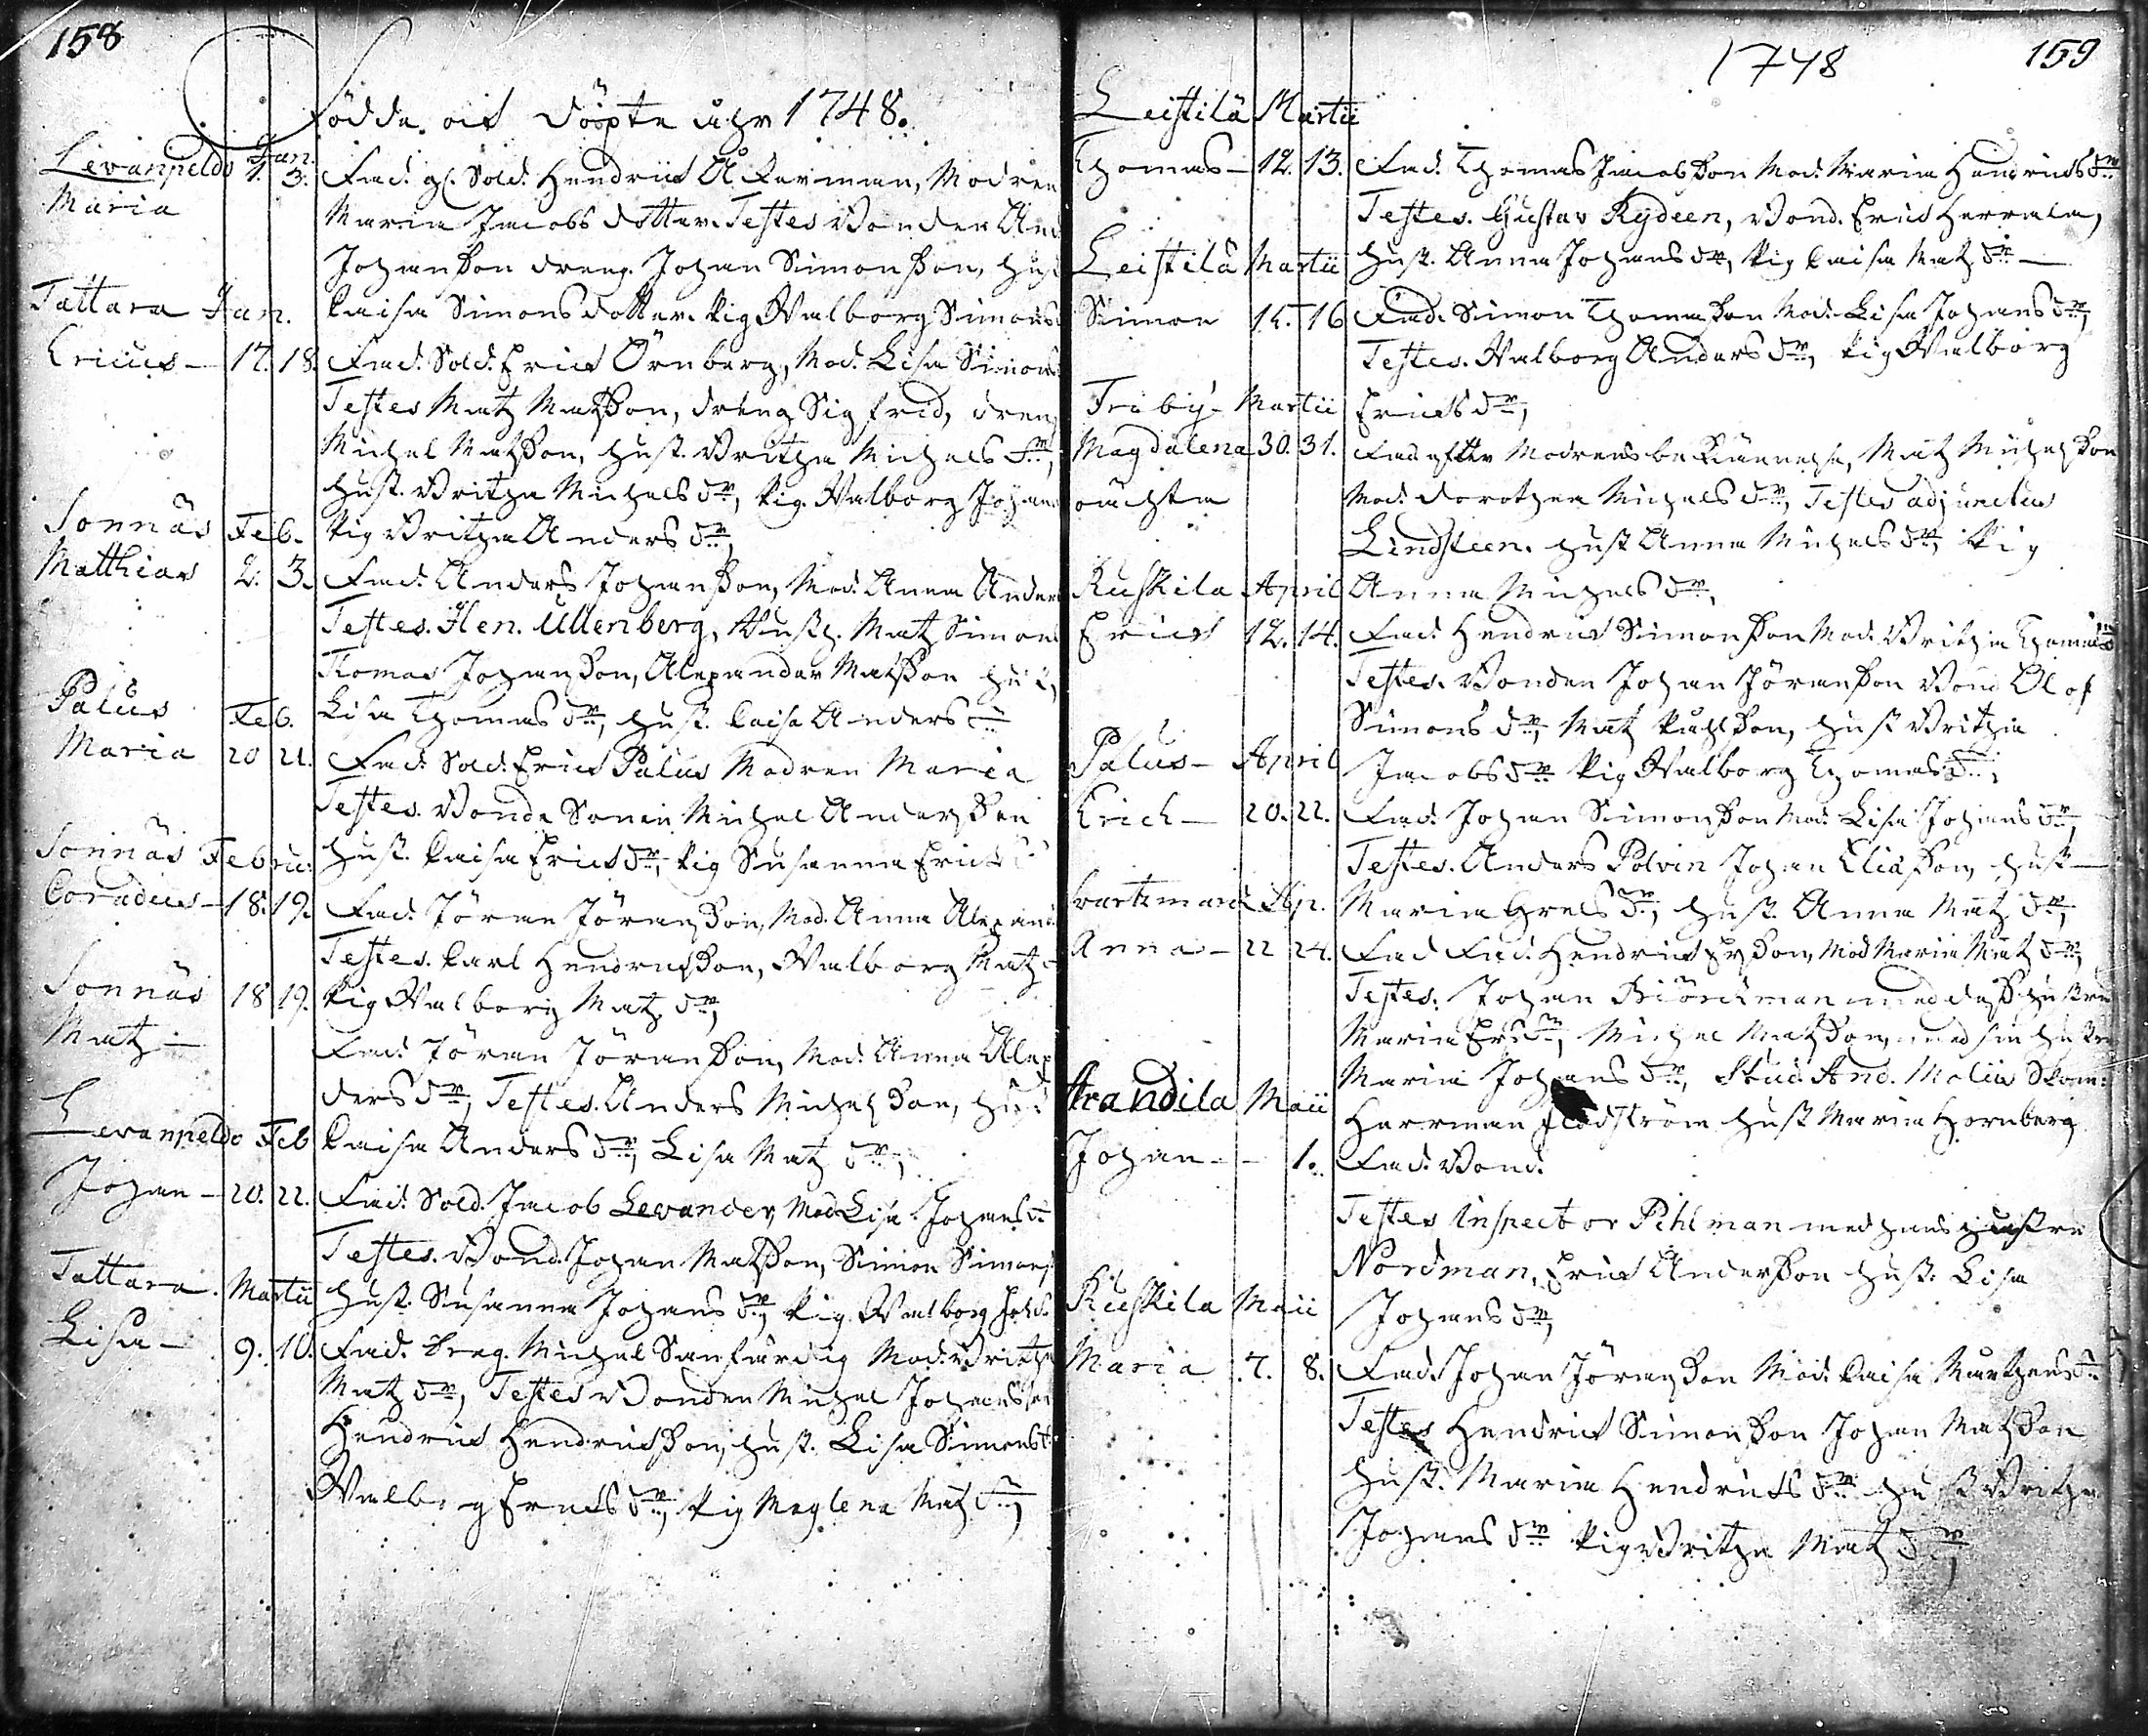 158
Födde och döpte åhr 1748.
Levanpeldo Jan.
1. 3. Fad. gl. Sold. Hendrich Åkerman, Modren
Maria
Maria Jacobs dotter. Testes Bonden And
Johansson dreng. Johan Simonsson, hust
Caisa Simonsdotter. Pig Walborg Simons
Tattara Jan.
Ericus - 17. 18. Fad. Sold. Erich Örnberg, Mod. Lisa Simons
Testes Matz Matsson, dreng Sigfrid, dreng
Michel Matsson, hust. Britha Michels dr,
hust. Britha Michels dr, Pig. Walborg Johans
Pig Britha Anders dr,
Sonnäs Feb.
Matthias 2. 3. Fad. Anders Johansson, Mod. Anna Anders
Testes. Hen. Ullenberg, Matz Simons
Thomas Johansson, Alexander Matsson hust,
Lisa Thomas dr, hust. Caisa Anders dr
Palus Feb.
Maria 20 21. Fad. Sold. Erich Palus Modren Maria
Testes. Bonde Sonen Michel Andersson
hust. Caisa Erichs dr, Pig Susanna Erichs
Sonnäs Febru:
Coradius - 18. 19. Fad. Jöran Jöransson, Mod. Anna Alexand
Testes. Carl Hendrichsson, Walborg Matz
Pig Walborg Matz dr,
Sonnäs 18 19.
Matz -
Fad. Jöran Jöransson, Mod. Anna Alex
ders dr, Testes. Anders Michelsson, hust
Caisa Anders dr, Lisa Matz dr,
Levanpeldo Feb
Johan - 20. 22. Fad. Sold. Jacob Levander, Mod Lisa Johans dr
Testes. Bond. Johan Matsson, Simon Simons
hust. Susanna Johans dr, Pig Walborg Joh
Tattara. Martii
Lisa - 9. 10. Fad. dreng. Michel Sanfärdig Mod. Britha
Matz dr, Testes Bonden Michel Johansson
Hendrich Hendrichsson, hust. Lisa Simons dr
Walborg Erichs dr, Pig Maglena Matz dr,
1748 159
Leistilä Martii
Thomas - 12. 13. Fad. Thomas Jacobsson Mod. Maria Hendrichs dr
Testes. Gustav Rydeen, Bond. Erich Herrala,
hust. Anna Johans dr, Pig Caisa Matz dr -
Leistilä Martii
Simon 15. 16 Fad. Simon Thomasson Mod. Lisa Johans dr,
Testes. Walborg Anders dr, Pig Walborg
Erichs dr,
Friby - Martii
Magdalena 30. 31. Fad efter Modrens bekiännelse, Matz Michelsson
oächta
Mod. Dorothea Michels dr, Testes adjunctus
Lindsteen. hust Anna Michels dr, Pig
Anna Michels dr,
Kuskila April
Erich 12. 14. Fad. Hendrich Simonsson Mod. Britha Thomas dr
Testes. Bonden Johan Jöransson Bond Olof
Simons dr, Matz Påhlsson, hust Britha
Jacobs dr Pig Walborg Thomas dr,
Palus - April
Erich - 20. 22. Fad. Johan Simonsson Mod. Lisa Johans dr,
Testes. Anders Polvin Johan Eliasson, hust -
Maria Grels dr, hust. Anna Matz dr,
Svartzmark Ap.
Anna - 22 24. Fad Fad. Hendrich Ersson, Mod Maria Matz dr,
Testes. Johan Biörckman med dess hustru
Maria Ers dr, Michel Matsson, med sin hustru
Maria Johans dr, Stud. And. Molin
Herman Flodström hust Maria Hornberg
Strandila Maii
Johan - - 1. Fad. Bond.
Testes Inspector Pihlman med hans hustru
Nordman, Erich Andersson hust. Lisa
Johans dr,
Kuskila Maii
Maria 7. 8. Fad. Johan Jöransson Mod. Caisa Mårthens dr
Testes Hendrich Simonsson Johan Matsson
hust. Maria Hendrichs dr hust Britha
Johans dr Pig Britha Matz dr,